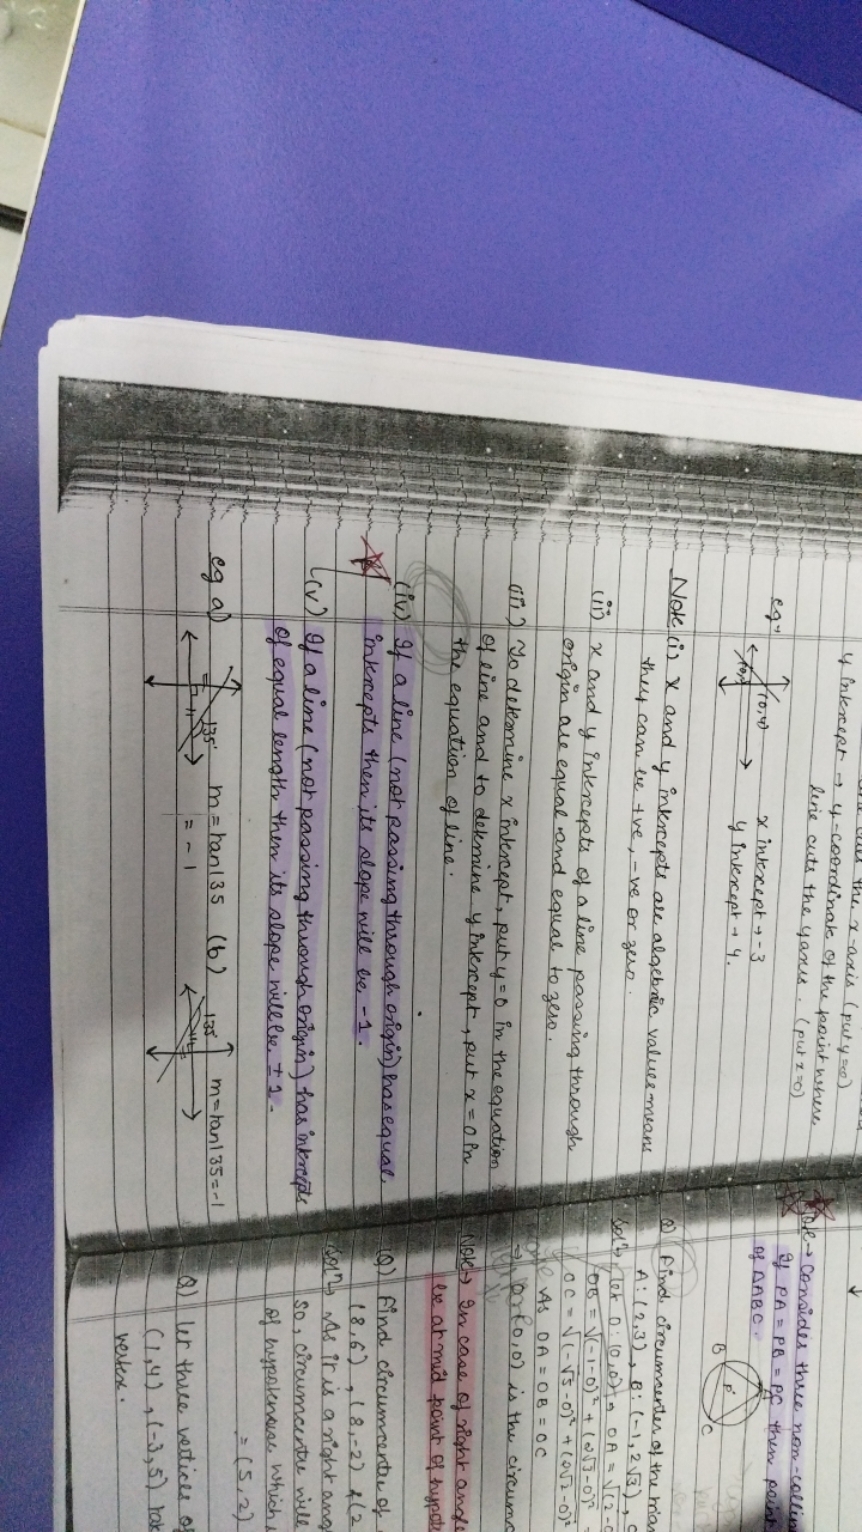 the x-axis (put y=0)
y intercept → y-coordinate of the point where
line cuts the y axis. (put x=0)
eg→
(0,4)
x intercept → -3
y intercept → 4.
Note (i) x and y intercepts are algebraic values means
they can be +ve, -ve or zero.
(ii) x and y intercepts of a line passing through
origin are equal and equal to zero.
(iii) To determine x intercept, put y=0 in the equation
of line and to detmine y intercept, put x=0 in
the equation of line.
(iv) If a line (not passing through origin) has equal
intercepts then its slope will be -1.
(v) If a line (not passing through origin) has intercepts
of equal length then its slope will be ±1.
eg a) 135° m=tan135 (b) 135° m=tan135=-1
= -1
Note → Consider three non-collin
If PA = PB = PC then point
of ΔABC.
A
B
P
C
Q) Find circumcenter of the trian
A: (2,3), B: (-1, 2√3),
Solⁿ→ let O: (0,0) → OA = √(2-0
OB = √(-1-0)² + (2√3-0)² =
OC = √(-√5-0)² + (2√2-0)²
As OA = OB = OC
→ O(0,0) is the circumc
Note → In case of right angle
be at mid point of hypote
Q) Find circumcentre of
(8,6), (8,-2) & (2
Solⁿ→ As it is a right ang
So, circumcentre will
of hypotenuse which
= (5,2)
Q) let three vertices of
(1,4), (-3,5)
vertex.